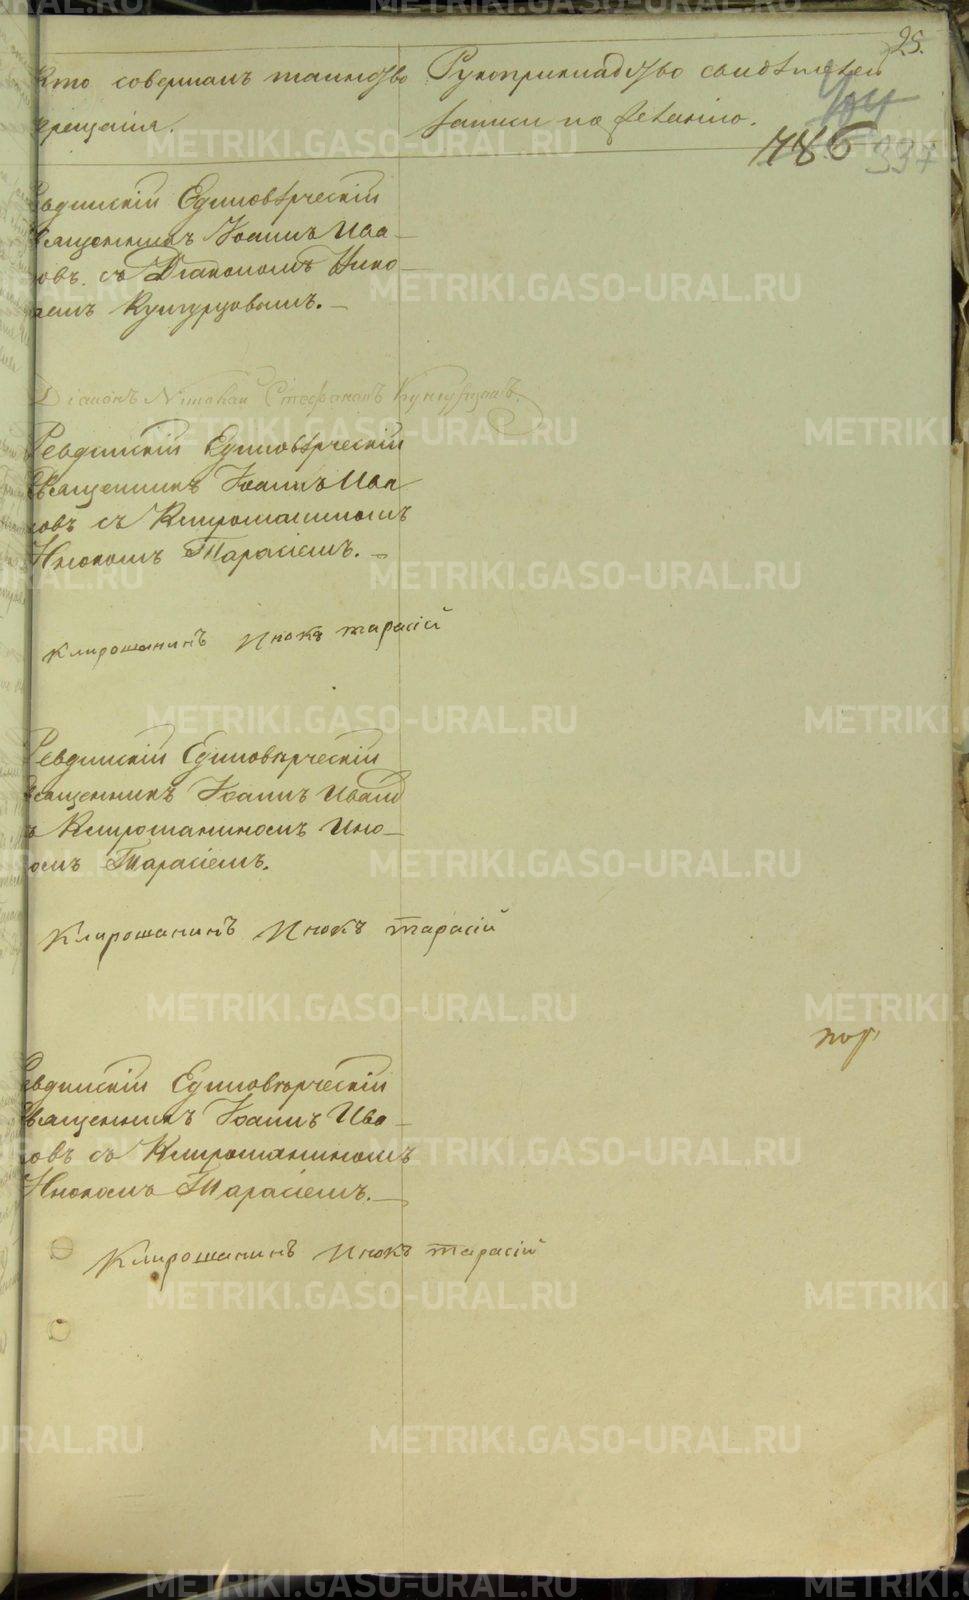 25.
Кто совершалъ таинство
крещенія.
Рукоприкладство свидѣтелей
записи по желанію.
186
Ревдинскій Единовѣрческій
Священникъ Іоаннъ Ива-
новъ. съ Діакономъ Нико-
лаемъ Кунгурцовымъ.-
Діаконъ Николай Стефановъ Кунгурцовъ.
Ревдинскій Единовѣрческій
Священникъ Іоаннъ Ива
новъ съ Клирошаниномъ
Инокомъ Тарасіемъ.-
Клирошанинъ Инокъ тарасій
Ревдинскій Единовѣрческій
Священникъ Іоаннъ Иванов
ъ Клирошаниномъ Ино-
комъ Тарасіемъ.
Клирошанинъ Инокъ тарасій
Ревдинскій Единовѣрческій
Священникъ Іоаннъ Ива-
новъ съ Клирошаниномъ
Инокомъ Тарасіемъ.-
Клирошанинъ Инокъ тарасій
METRIKI.GASO-URAL.RU